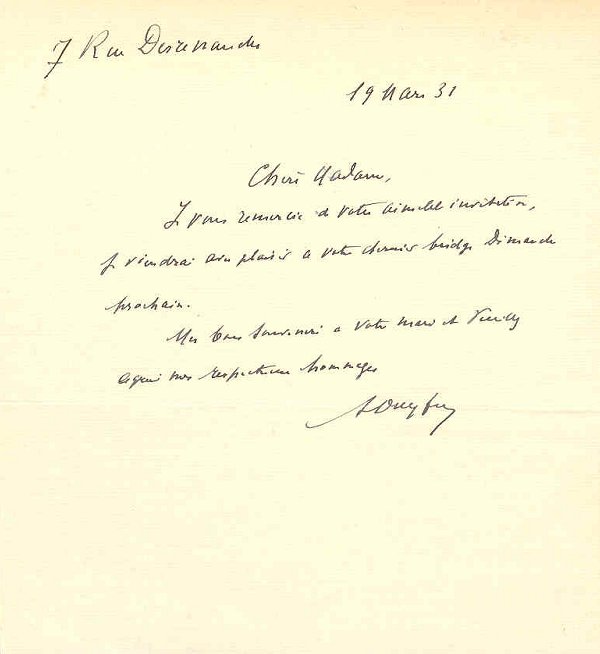 7 Rue Desrenaudes
19 Mars 31
Chère Madame,
Je vous remercie de votre aimable invitation,
je viendrai avec plaisir à votre dernier bridge Dimanche
prochain.
Mes bons souvenirs à votre mari et Veuillez
agréer mes respectueux hommages
A Dreyfus